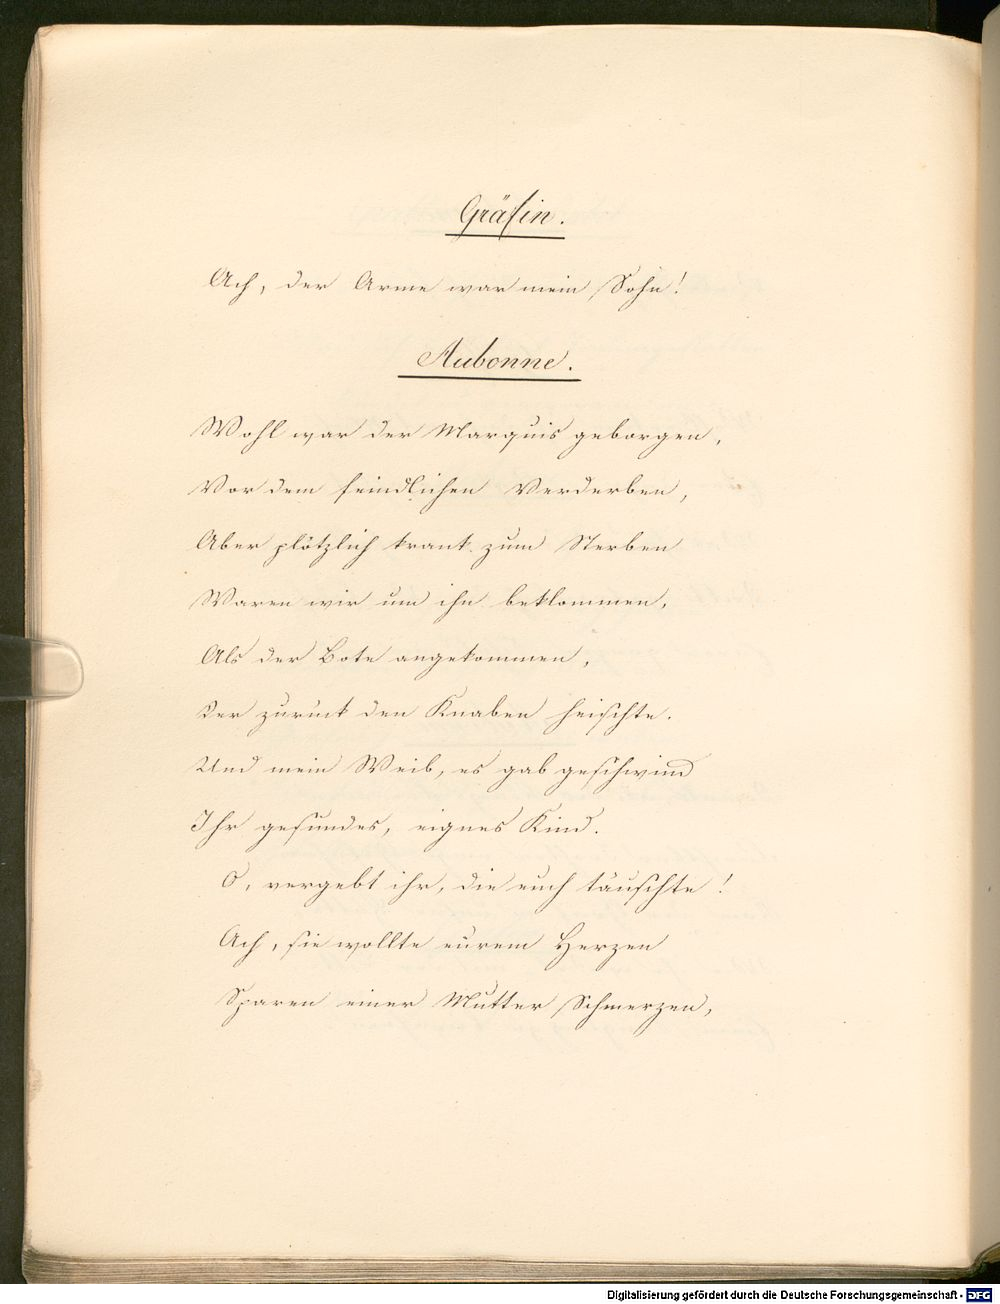 Gräfin.
Ach, der Arme war mein Sohn!
Aubonne.
Wohl war der Marquis geborgen,
Vor dem feindlichen Verderben,
Aber plötzlich krank zum Sterben
Waren wir um ihn beklommen,
Als der Bote angekommen,
Der zurück den Knaben heischte.
Und mein Weib, es gab geschwind
Ihr gesundes, eignes Kind.
O, vergebt ihr, die euch täuschte!
Ach, sie wollte eurem Herzen
Sparen einer Mutter Schmerzen,
Digitalisierung gefördert durch die Deutsche Forschungsgemeinschaft - DFG